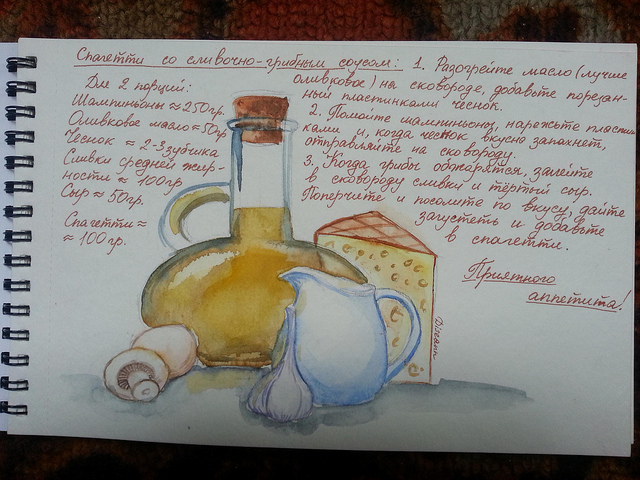 Спагетти со сливочно-грибным соусом:
Для 2 порций:
Шампиньоны ≈ 250гр.
Оливковое масло ≈ 50гр
Чеснок ≈ 2-3 зубчика
Сливки средней жир-
ности ≈ 100гр
Сыр ≈ 50гр.
Спагетти ≈
≈ 100гр.
1. Разогрейте масло (лучше
оливковое) на сковороде, добавьте порезан-
ный пластинками чеснок.
2. Помойте шампиньоны, нарежьте пласти
ками и, когда чеснок вкусно запахнет,
отправляйте на сковороду.
3. Когда грибы обжарятся, залейте
в сковороду сливки и тёртый сыр.
Поперчите и посолите по вкусу, дайте
загустеть и добавьте
в спагетти.
Приятного
аппетита!